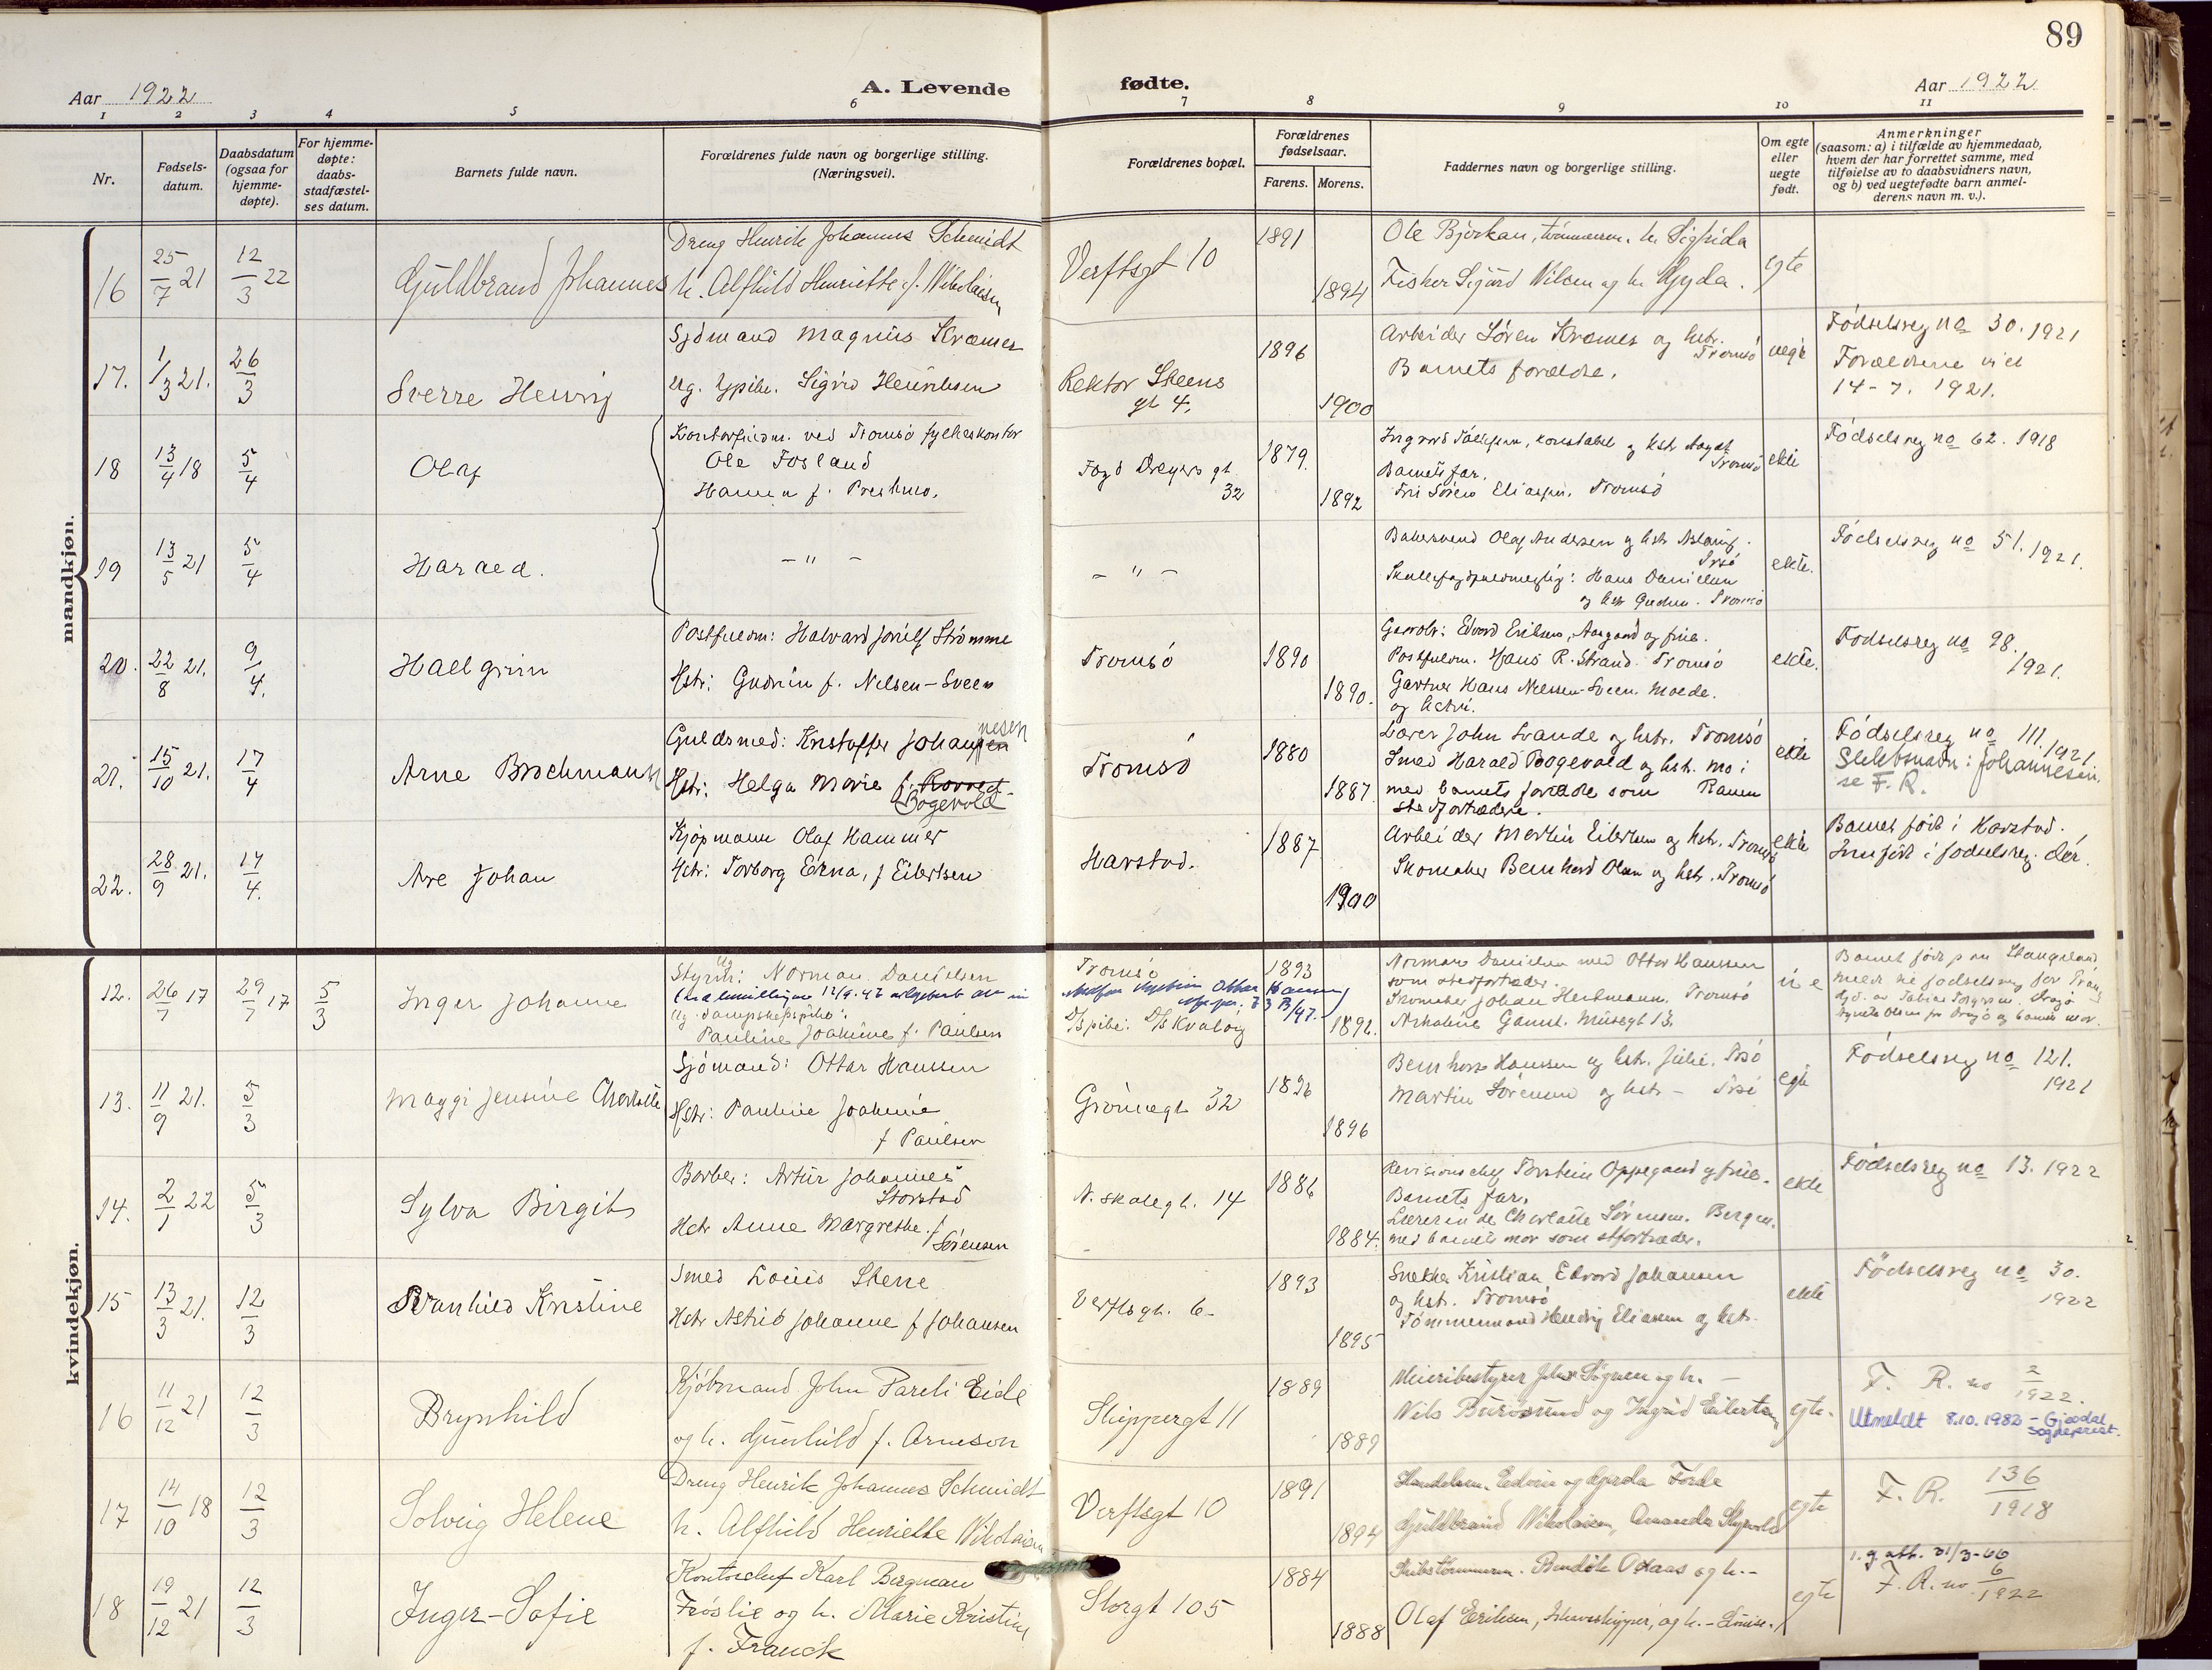 89
Aar 1922
A. Levende fødte.
Aar 1922
1 2 3 4 5 6 7 8 9 10 11
Nr.
Fødsels-
datum.
Daabsdatum
(ogsaa for
hjemme-
døpte).
For hjemme-
døpte:
daabs-
stadfæstel-
ses datum.
Barnets fulde navn.
Forældrenes fulde navn og borgerlige stilling.
(Næringsvei).
Forældrenes bopæl.
Forældrenes
fødselsaar.
Farens. Morens.
Faddernes navn og borgerlige stilling.
Om egte
eller
uegte
født.
Anmerkninger
(saasom: a) i tilfælde av hjemmedaab,
hvem der har forrettet samme, med
tilføielse av to daabsvidners navn,
og b) ved uegtefødte barn anmel-
derens navn m. v.).
mandkjøn.
16 25/7 21 12/3 22 Guldbrand Johannes
Dreng Henrik Johannes Schmidt
h. Alfhild Henriette f. Nikolaisen
Verftsgt 10
1891
1894
Ole Bjørkan, tømmerm. h. Sigfrida
Fisker Sigurd Nilsen og h. Gyda.
egte
17. 1/3 21. 26/3 Sverre Henrij
Sjömand Magnus Kræmer
Ug. Ypike. Sigrid Henriksen
Rektor Steens
gt 4.
1896
1900
Arbeider Sören Kræmer og hstr. Tromsö
Barnets forældre.
uegte
Födselsreg no 30. 1921
Forældrene viet
14-7. 1921.
18 13/4 18 5/4 Olaf
Kontorfuldm. ved Tromsö fylkeskontor
Ole Fosland
Hanna f. Prestmo.
Fogd Dreyers gt
32
1879.
1892
konstabel og hstr Tromsö
Barnets far.
Eliassen. Tromsö
ekte
Födselsreg no 62. 1918
19 13/5 21 5/4 Harald.
- " -
- " -
Bakersvend Olaf Andersen og hstr Aslaug.
Trsö
Hans Danielsen
og hstr Gudrun. Tromsö
ekte.
Födselsreg no 51. 1921.
20. 22/8 21. 9/4. Hallgrim
Postfuldm: Halvard Strömme
Hstr: Gudrun f. Nelsen-Sveen
Tromsö
1890
1890.
Edvard Eriksen, Aasgaard og frue.
Postfuldm. Hans R. Strand. Tromsö
Gartner Hans Nielsen-Sveen. Molde.
og hstru.
ekte.
Fodselsreg no 98.
1921.
21. 15/10 21. 17/4 Arne Brochmann
Guldsmed: Kristoffer Johannesen
Hstr: Helga Marie f.
Bogevold
Tromsö
1880
1887.
Lærer John Strande og hstr. Tromsö
Smed Harald Bogevold og hstr. Mo i
med barnets forældre som Ranen
stedfortrædere.
ekte
Födselsreg no 111. 1921
Slektsnavn: Johannesen.
se F. R.
22. 28/9 21. 17/4. Are Johan
Kjöpmann Olaf Hammer
Hstr: Torborg Edna, f Eilertsen
Harstad.
1887
1900
Arbeider Martin Eilertsen og hstr. Tromsö
Skomaker Bernhard Olsen og hstr. Tromsö
ekte
Barnet född i Harstad.
Innfört i fodselsreg. der.
kvindekjøn.
12. 26/7 17 29/7 17 5/3 Inger Johanne
Styrm: Ug Norman Danielsen
Ug. dampskipspike:
Pauline Joakime f. Paulsen
Tromsö
D/Spike: D/S Kvalöy
1893
1892.
Norman Danielsen med Ottar Hanssen
som stedfortræder.
Skomaker Johan Herkmann. Tromsö
Gamst. Musegt 13.
u e
13. 11/9 21. 5/3 Maggi Jensine Charlotte
Sjömand: Ottar Hanssen
Hstr: Pauline Joakime
f Paulsen
Grönnegt 32
1896
1896
Bernhard Hanssen og hstr. Julie. Trsö
Martin Sörensen og hstr - Trsö
egte
Födselsreg no 121.
1921
14. 2/1 22 5/3 Sylva Birgit
Barber: Artur Johannes
Storstad
Hstr Anne Margrethe. f
Sörensen
N. skolegt. 14
1886
1884.
Revisionschef Torstein Oppegaard og frue.
Barnets far.
Lærerinde Charlotte Sörensen. Bergen.
med barnets mor som stfortræder.
ekte
Födselsreg no 13. 1922
15 13/3 21. 12/3 Ranhild Kristine
Smed Louis Stene
Hstr Astrid Johanne f Johansen
Verftsgt. 6-
1893
1895
Snekker Kristian Edvard Johansen
og hstr. Tromsö
Tömmermand Hendrij Eliassen og hstr.
ekte
Födselsreg no 30.
1922
16 11/12 21 12/3 Brynhild
Kjöbmand John Pareli Eide
og h. Gunhild f. Arneson
Skippergt 11
1889
1889
Meieribestyrer John Sögnen og h. -
Nils Buresund og Ingrid Eilertsen
egte.
F. R. no 2/1922.
Utmeldt 8.10.1982 - Gjesdal
sogneprest.
17 14/10 18 12/3 Solveig Helene
Dreng Henrik Johannes Schmidt
h. Alfhild Henriette Nikolaisen
Verftsgt 10
1891
1894
Handelsm. Edvin og Gerda Förde
Guldbrand Nikolaisen, Amanda
egte
F. R. 136/1918
18 19/12 21 12/3 Inger-Sofie
Kontorchef Karl Bergman
Fröslie og h. Marie Kristine
f. Franck
Storgt 105
1884
1888
Skibstömmerm. Bendik Oxaas og h.-
Olaf Eriksen, og h. - Louise.
egte
1. g. att. 31/3-66
F. R. no. 6/1922